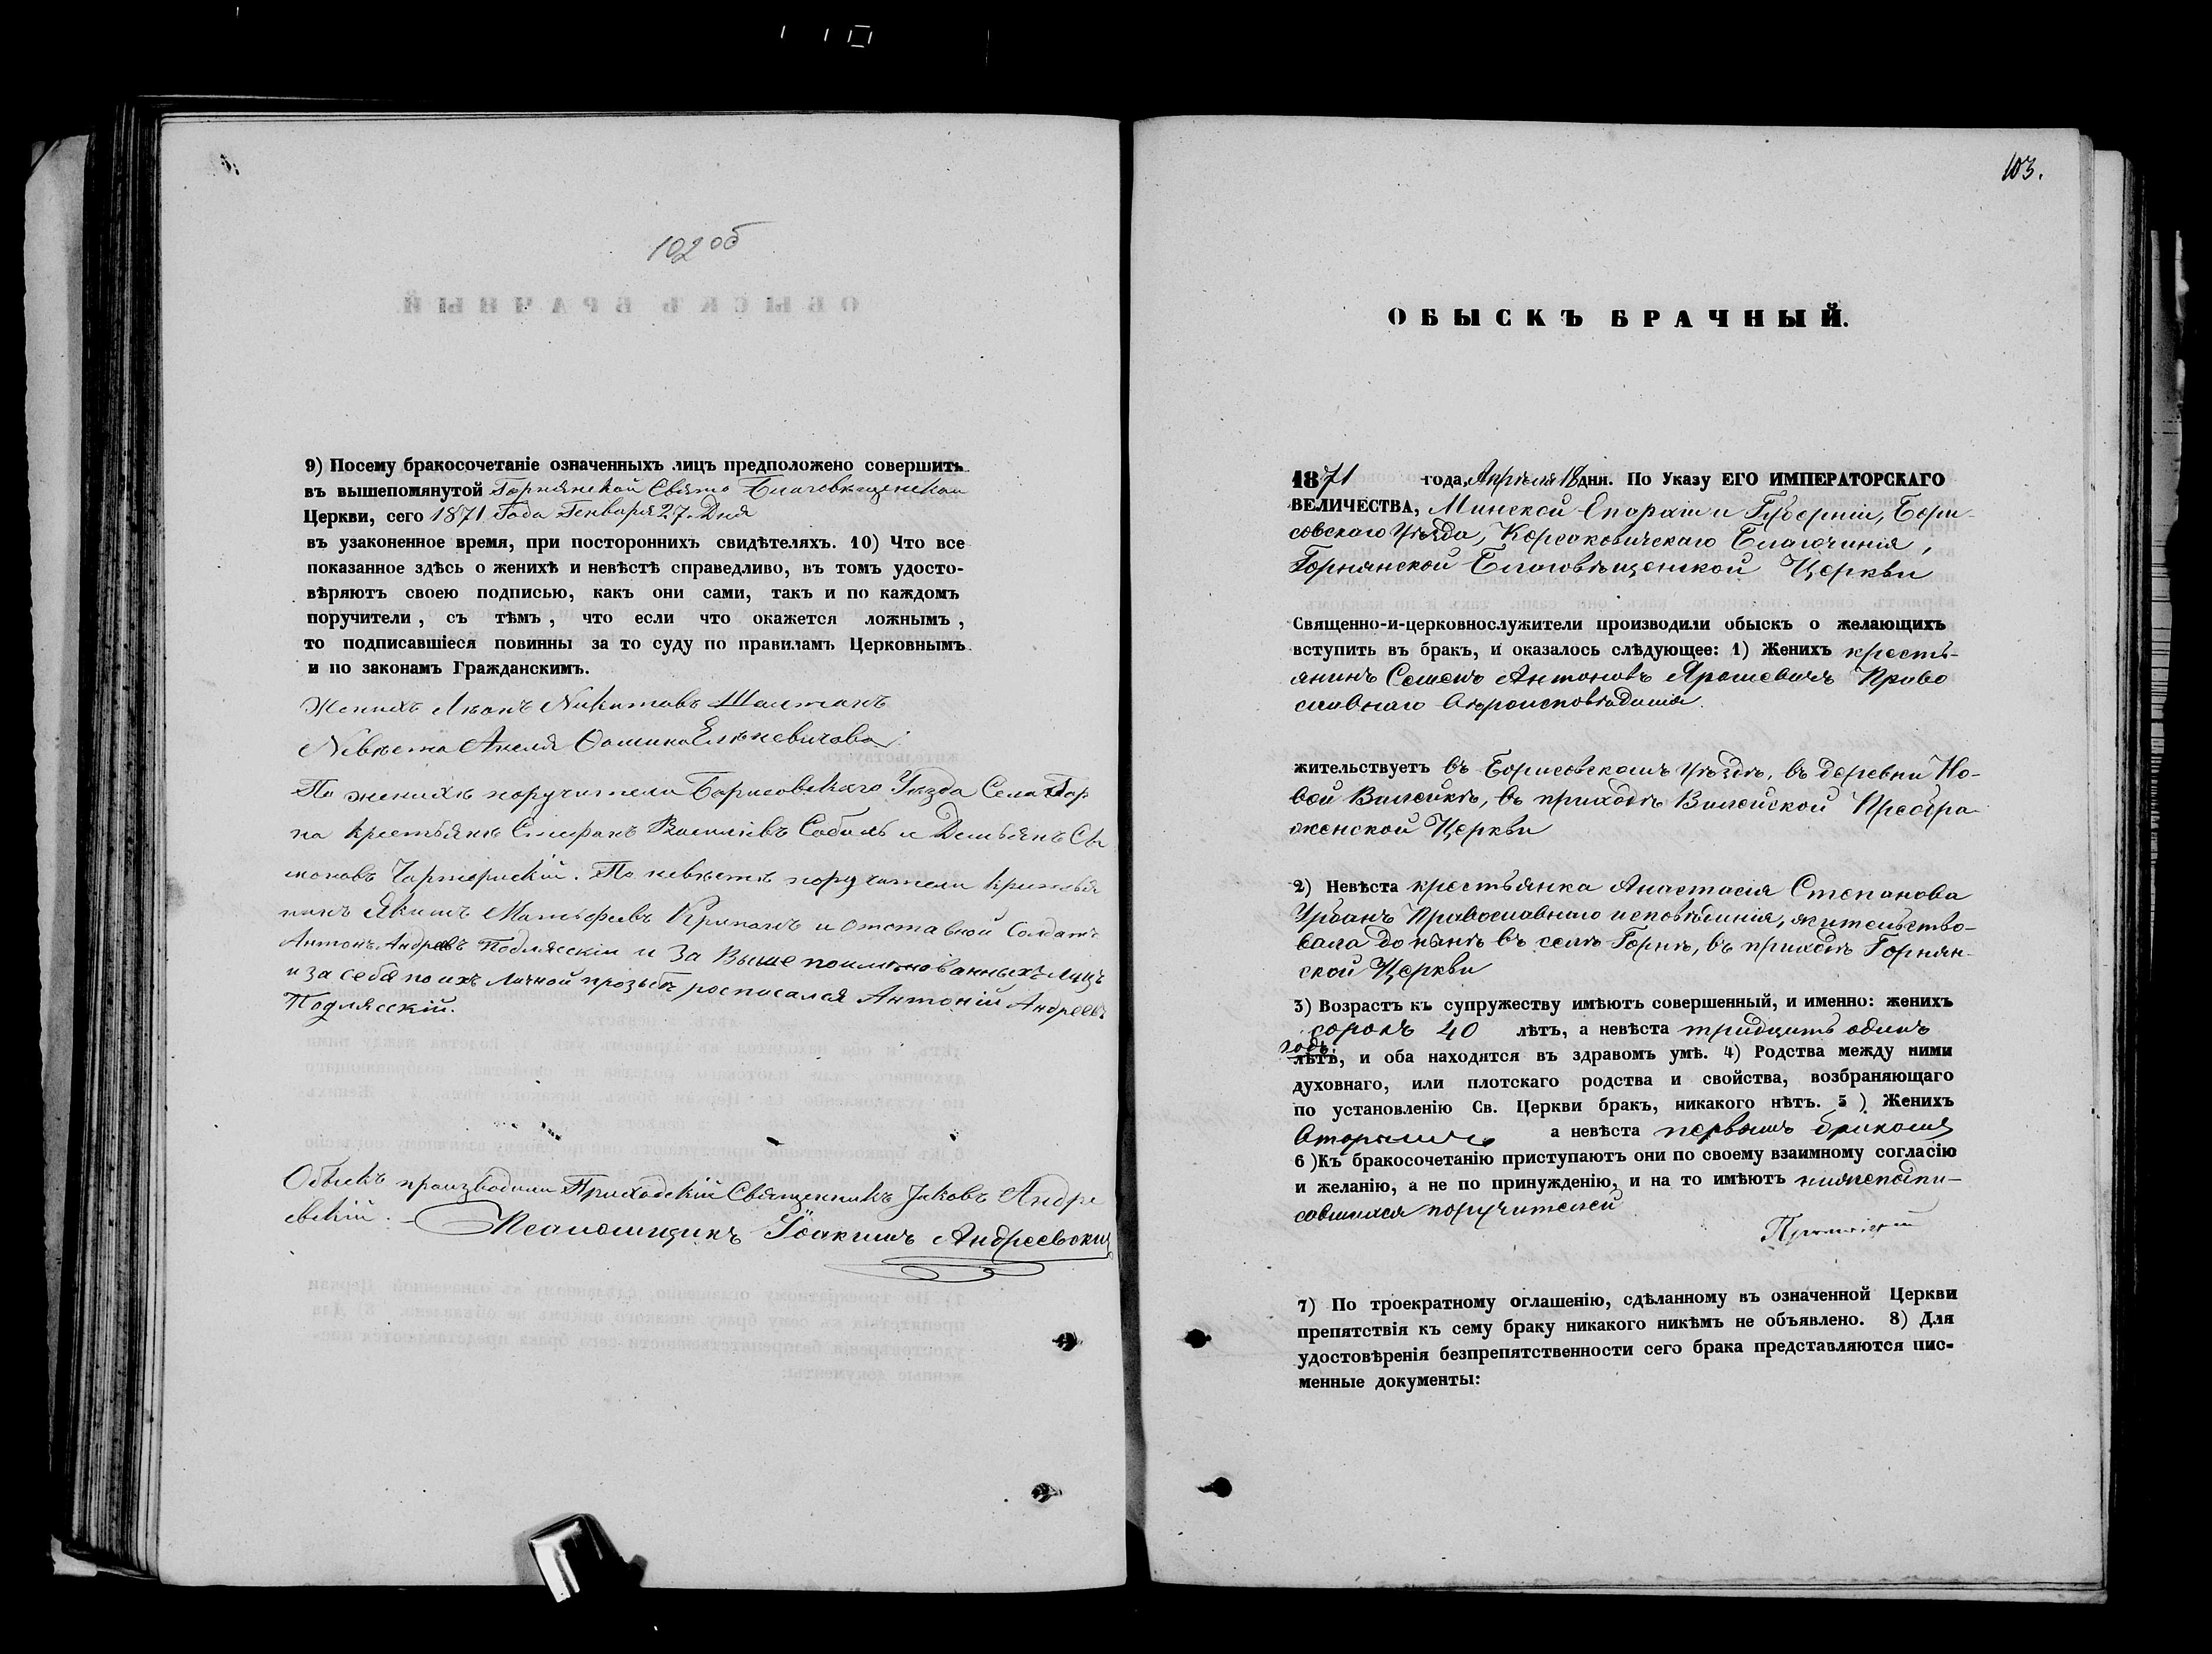 102 об
9) Посему бракосочетаніе означенныхъ лицъ предположено совершить
въ вышепомянутой Горнянской Свято Благовѣщенской
Церкви, сего 1871 Года Генваря 27. Дня
въ узаконенное время, при постороннихъ свидѣтеляхъ. 10) Что все
показанное здѣсь о женихѣ и невѣстѣ справедливо, въ томъ удосто-
вѣряютъ своею подписью, какъ они сами, такъ и по каждомъ
поручители, съ тѣмъ, что если что окажется ложнымъ,
то подписавшіеся повинны за то суду по правиламъ Церковнымъ
и по законамъ Гражданскимъ.
Женихъ Никитовъ
Невѣста Анеля Ѳомина
По женихѣ поручители Борисовскаго Уѣзда Села Гор
на Крестьяне Стефанъ Василіевъ Соболь и Демьянъ Си
моновъ Чарторискій. По невѣстѣ поручители Крестья
нинъ Якимъ Матфеевъ и отставной Солдатъ
Антонъ Андреевъ Подлясскій и За Выше поименованныхъ лицъ
и за себя по ихъ личной прозьбѣ росписался Антоній Андреевъ
Подлясскій.
Обыскъ производили Приходскій Священникъ Іаковъ Андре
евскій.
Псаломщикъ Іоакимъ Андреевскій
103.
ОБЫСКЪ БРАЧНЫЙ.
1871 года, Апрѣля 18 дня. По Указу ЕГО ИМПЕРАТОРСКАГО
ВЕЛИЧЕСТВА, Минской Епархіи и Губерніи, Бори-
совскаго Уѣзда, Корсаковичскаго Благочинія,
Горнянской Благовѣщенской Церкви
Священно-и-церковнослужители производили обыскъ о желающихъ
вступить въ бракъ, и оказалось слѣдующее: 1) Женихъ кресть-
янинъ Семенъ Антоновъ Ярошевичъ Право
славнаго Вѣроисповѣданія.
жительствуетъ въ Борисовскомъ уѣздѣ, въ деревни Но-
вой Вилейкѣ, въ приходѣ Вилейской Преобра-
женской Церкви
2) Невѣста крестьянка Анастасія Степанова
Урбанъ Православнаго исповѣданія, жительство-
вала до нынѣ въ селѣ Горнѣ, въ приходѣ Горнян-
ской Церкви
3) Возрастъ къ супружеству имѣютъ совершенный, и именно: женихъ
сорокъ 40 лѣтъ, а невѣста тридцать одинъ
годъ
лѣтъ, и оба находятся въ здравомъ умѣ. 4) Родства между ними
духовнаго, или плотскаго родства и свойства, возбраняющаго
по установленію Св. Церкви бракъ, никакого нѣтъ. 5) Женихъ
вторымъ а невѣста первымъ бракомъ
6) Къ бракосочетанію приступаютъ они по своему взаимному согласію
и желанію, а не по принужденію, и на то имѣютъ нижеподпи-
савшихся поручителей
7) По троекратному оглашенію, сдѣланному въ означенной Церкви
препятствія къ сему браку никакого никѣмъ не объявлено. 8) Для
удостовѣренія безпрепятственности сего брака представляются пис-
менные документы: